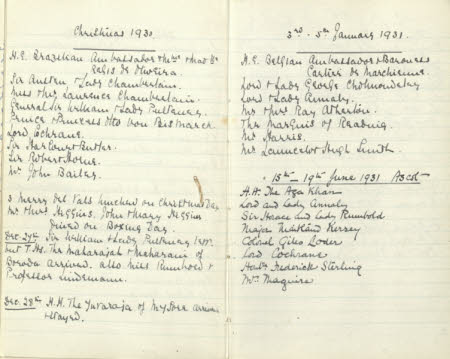 Christmas 1930.
H.E. Brazilian Ambassador & Mme & Mad lle
Regis de Oliveira.
Sir Austen & Lady Chamberlain.
Miss & Mrs Laurence Chamberlain.
General Sir William & Lady Pulteney.
Prince & Princess Otto Von Bismarck.
Lord Cochrane.
Sir Harcourt Butler.
Sir Robert Horne.
Mr John Bailey.
3 Merry del Vals lunched on Christmas Day
Mr & Mrs Higgins, John & Mary Higgins
dined on Boxing Day.
Dec. 27th Sir William & Lady Pulteney left.
but T.H. The Maharajah & Maharani of
Baroda arrived. also Miss Rumbold &
Professor Lindemann.
Dec. 28th H.H. The Yuvaraja of Mysore arrived
& stayed.
3rd - 5th January 1931.
H.E. Belgian Ambassador & Baroness
Cartier de Marchienne.
Lord & Lady George Cholmondeley
Lord & Lady Annaly.
Mr & Mrs Ray Atherton.
The Marquis of Reading.
Mr Harris.
Mr Launcelot Hugh Smith.
15th - 19th June 1931 Ascot
H.H. The Aga Khan
Lord and Lady Annaly
Sir Horace and Lady Rumbold
Major Maitland Kersey
Colonel Giles Loder
Lord Cochrane
Frederick Sterling
Mrs Maguire